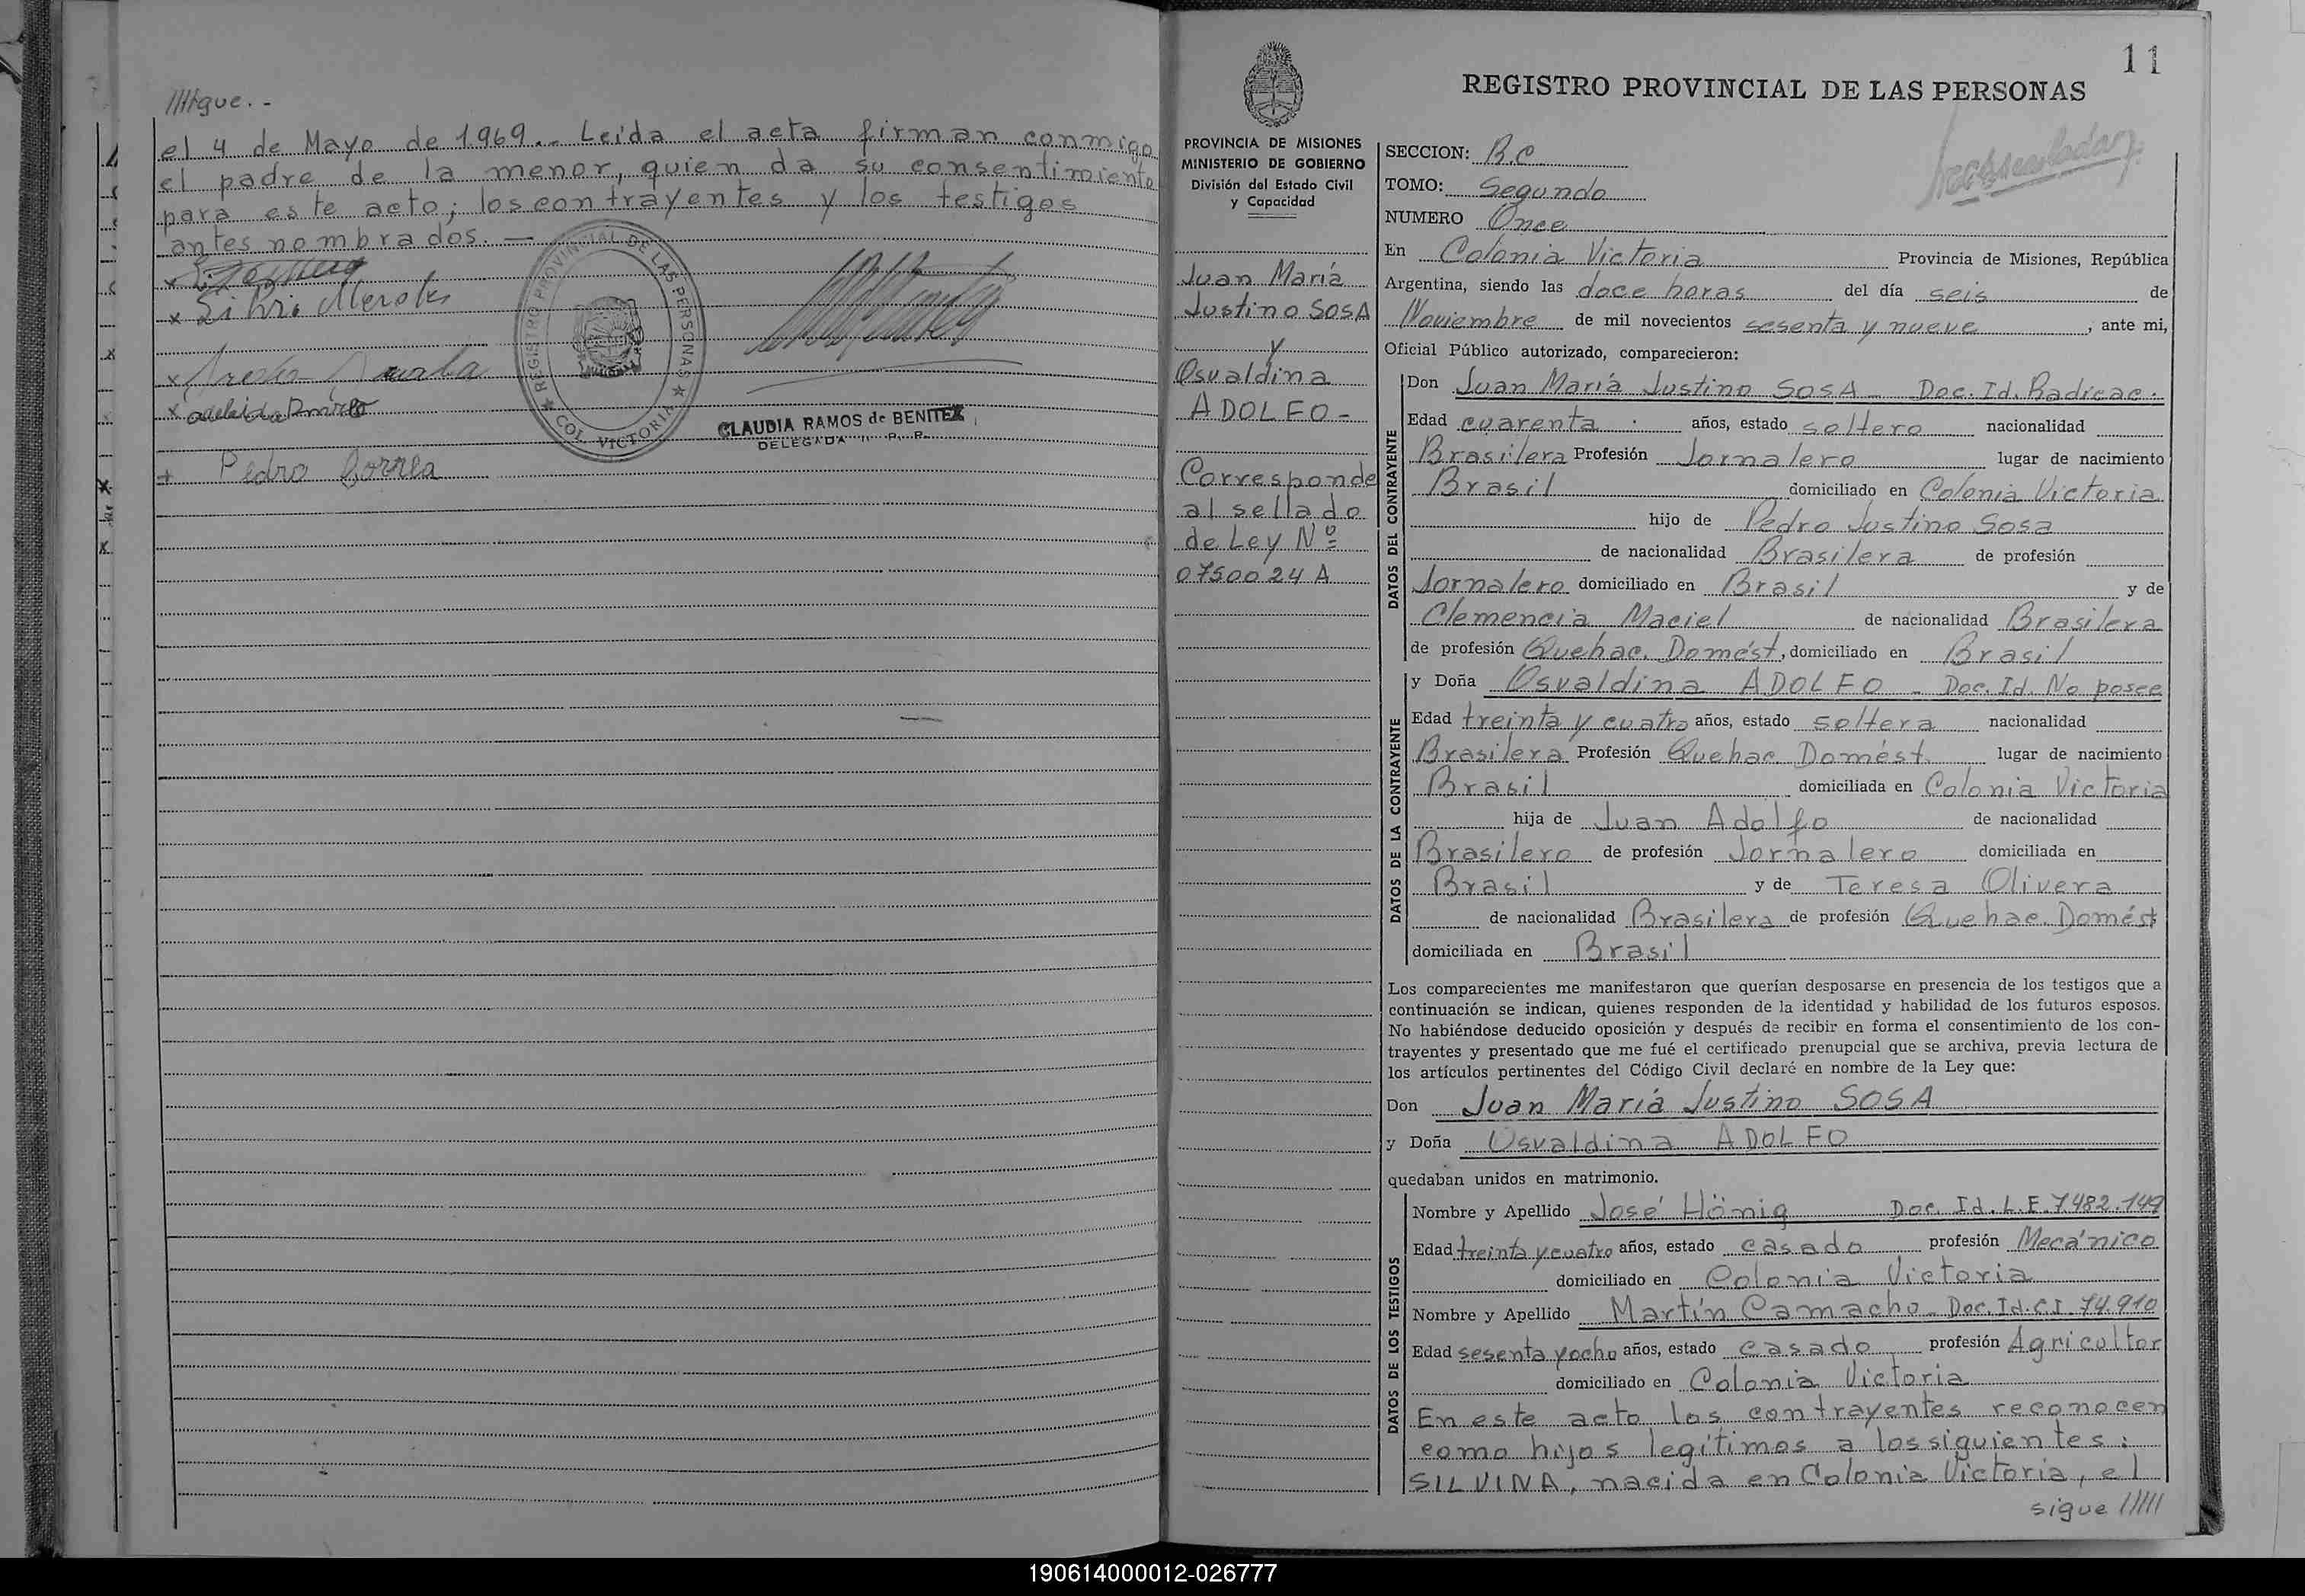 ////gue.-
el 4 de Mayo de 1969.. Leida el acta firman conmigo
el padre de la menor, quien da su consentimiento
para este acto; los contrayentes y los testigos
antes nombrados. —
x
x
x
x
+ Pedro Correa
REGISTRO PROVINCIAL DE LAS PERSONAS
COL. VICTORIA
CLAUDIA RAMOS de BENITEZ
DELEGADA
11
REGISTRO PROVINCIAL DE LAS PERSONAS
PROVINCIA DE MISIONES
MINISTERIO DE GOBIERNO
División del Estado Civil
y Capacidad
Juan María
Justino SOSA
y
Osvaldina
ADOLFO-
Corresponde
al sellado
de Ley Nº
0750024 A
SECCION: B.C.
TOMO: Segundo
NUMERO Once
En Colonia Victoria Provincia de Misiones, República
Argentina, siendo las doce horas del día seis de
Noviembre de mil novecientos sesenta y nueve, ante mi,
Oficial Público autorizado, comparecieron:
DATOS DEL CONTRAYENTE
Don Juan María Justino SOSA - Doc. Id. Radicac.
Edad cuarenta años, estado soltero nacionalidad
Brasilera Profesión Jornalero lugar de nacimiento
Brasil domiciliado en Colonia Victoria
hijo de Pedro Justino Sosa
de nacionalidad Brasilera de profesión
Jornalero domiciliado en Brasil y de
Clemencia Maciel de nacionalidad Brasilera
de profesión Quehac. Domést, domiciliado en Brasil
DATOS DE LA CONTRAYENTE
y Doña Osvaldina ADOLFO - Doc. Id. No posee
Edad treinta y cuatro años, estado soltera nacionalidad
Brasilera Profesión Quehac Domést. lugar de nacimiento
Brasil domiciliada en Colonia Victoria
hija de Juan Adolfo de nacionalidad
Brasilero de profesión Jornalero domiciliada en
Brasil y de Teresa Olivera
de nacionalidad Brasilera de profesión Quehac. Domést
domiciliada en Brasil
Los comparecientes me manifestaron que querían desposarse en presencia de los testigos que a
continuación se indican, quienes responden de la identidad y habilidad de los futuros esposos.
No habiéndose deducido oposición y después de recibir en forma el consentimiento de los con-
trayentes y presentado que me fué el certificado prenupcial que se archiva, previa lectura de
los artículos pertinentes del Código Civil declaré en nombre de la Ley que:
Don Juan María Justino SOSA
y Doña Osvaldina ADOLFO
quedaban unidos en matrimonio.
DATOS DE LOS TESTIGOS
Nombre y Apellido José Hönig Doc. Id. L.E. 7.482.149
Edad treinta y cuatro años, estado casado profesión Mecánico
domiciliado en Colonia Victoria
Nombre y Apellido Martín Camacho - Doc. Id. C.I. 74.910
Edad sesenta y ocho años, estado casado profesión Agricultor
domiciliado en Colonia Victoria
En este acto los contrayentes reconocen
como hijos legítimos a los siguientes:
SILVINA, nacida en Colonia Victoria, el
sigue /////
190614000012-026777